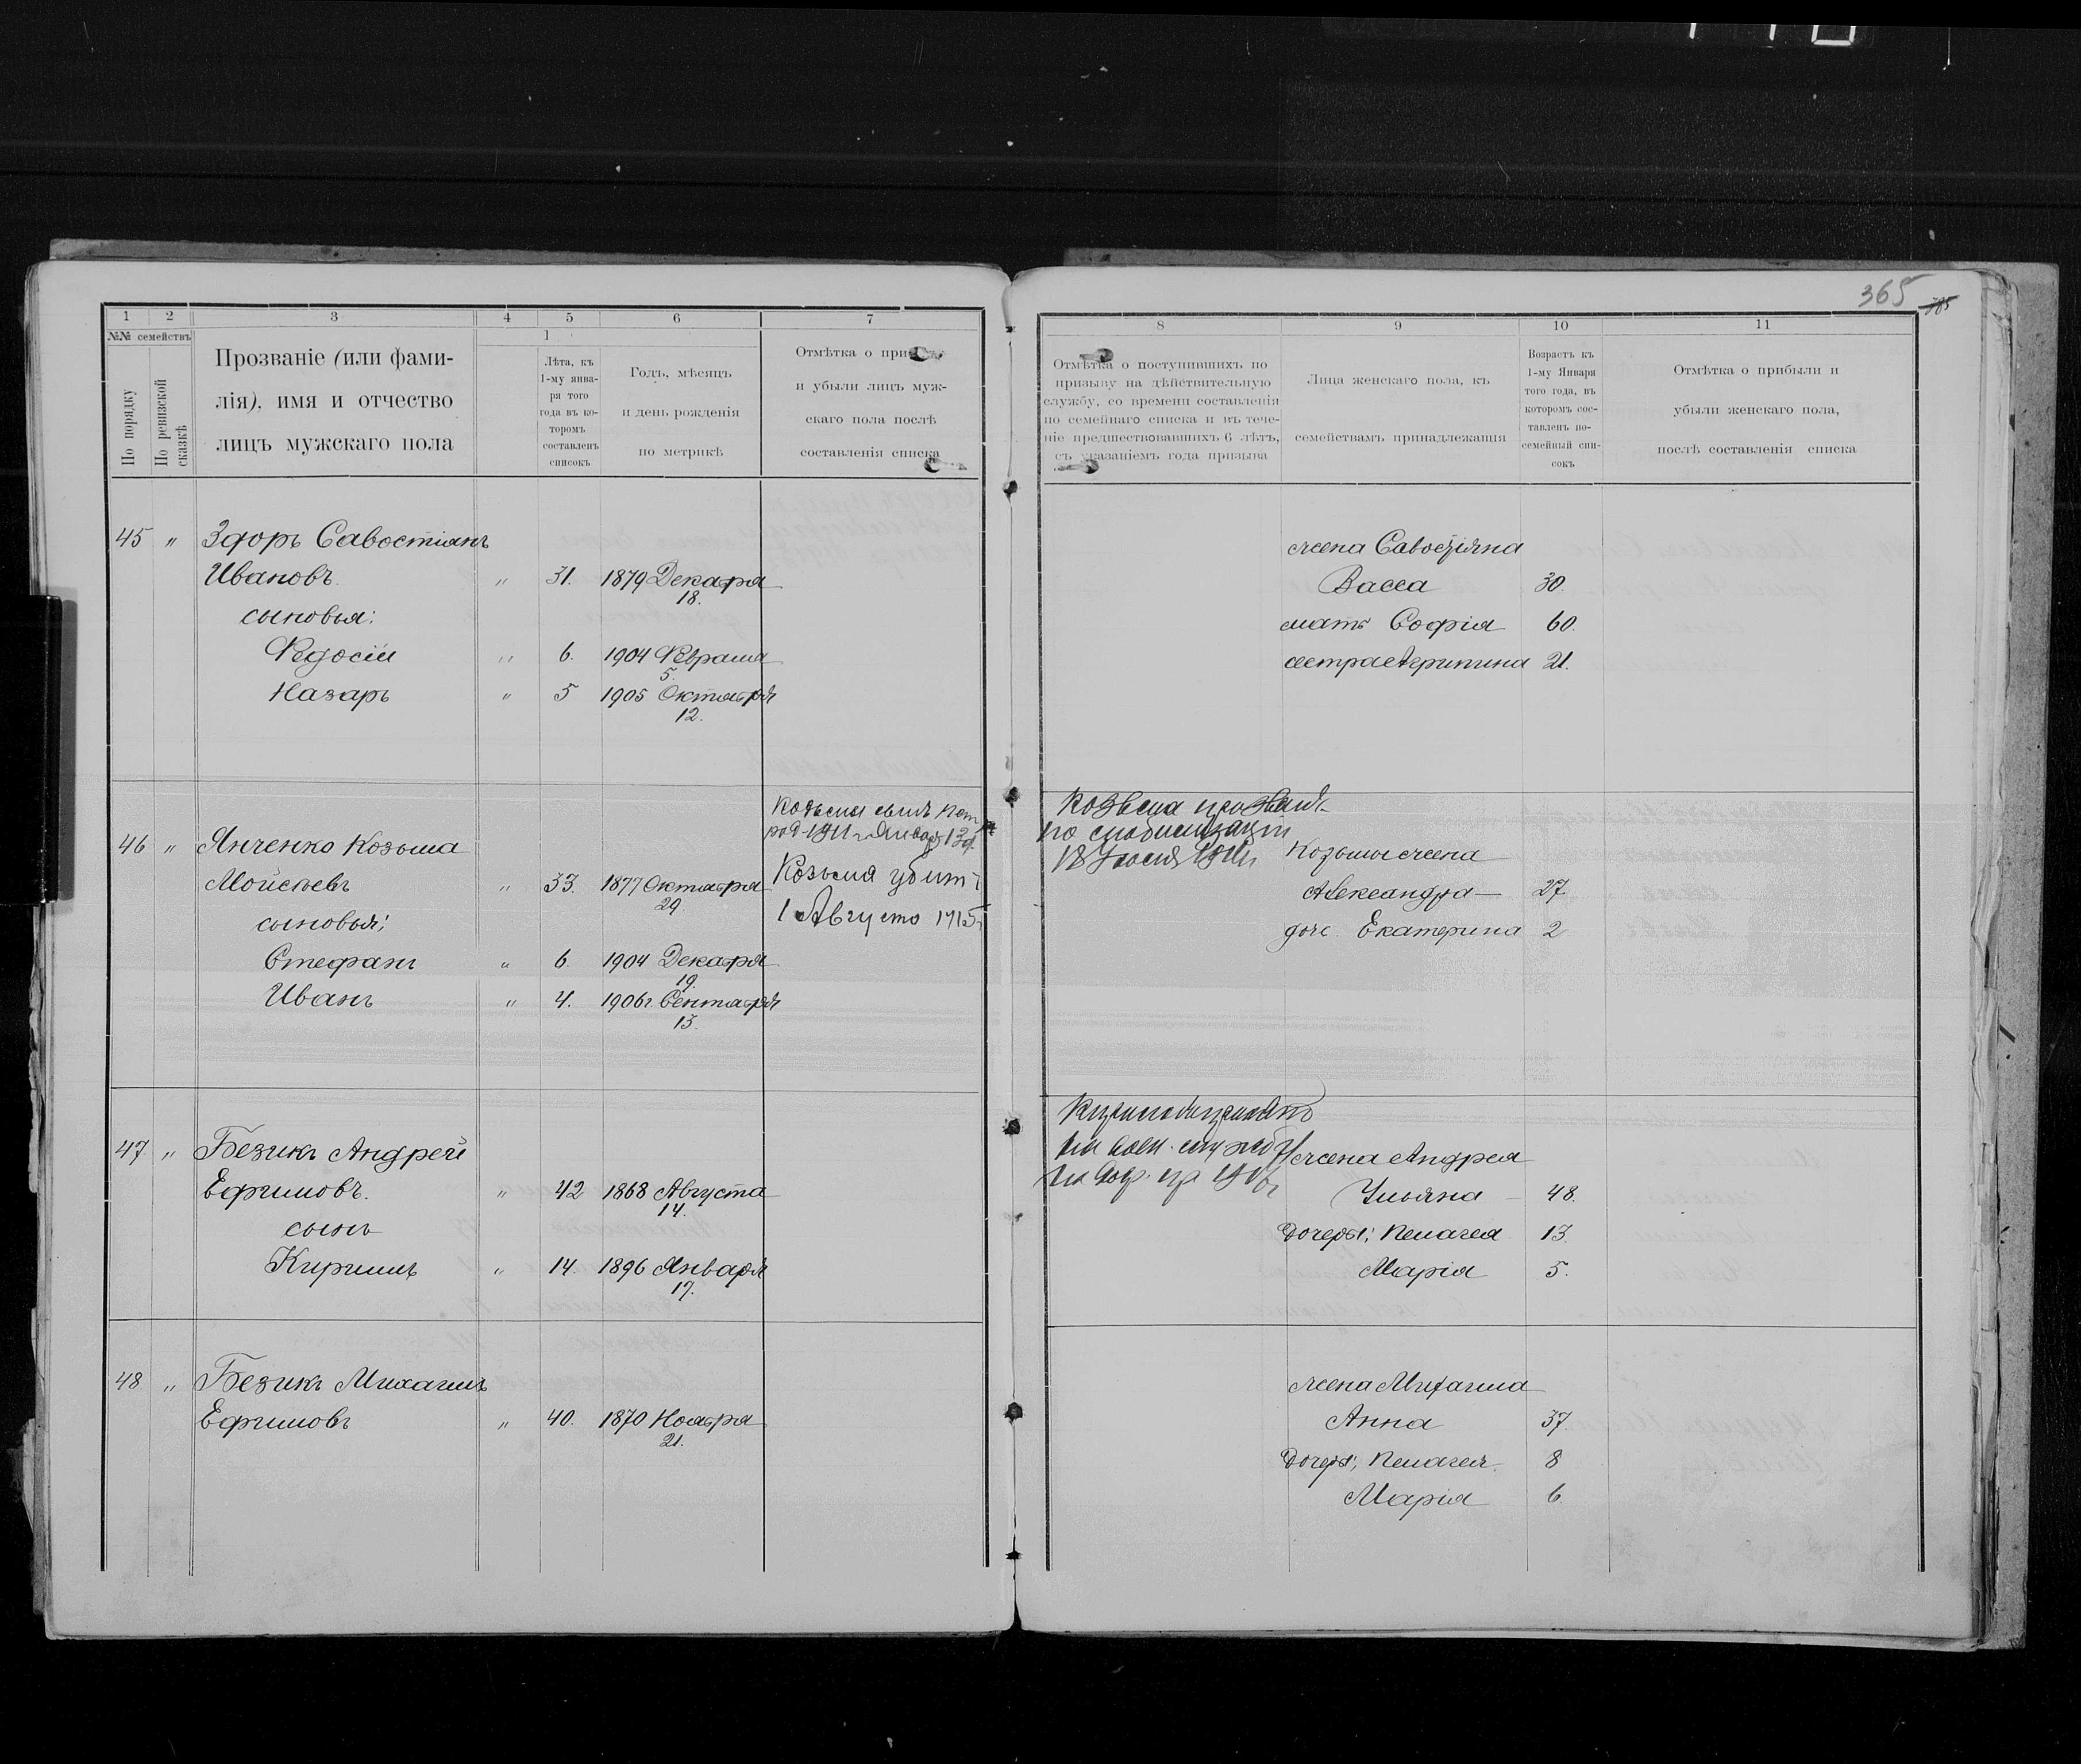 365
1 2 3 4 5 6 7
№№ семействъ
По порядку
По ревизской сказкѣ
Прозваніе (или фами-
лія), имя и отчество
лицъ мужскаго пола
1
Лѣта, къ
1-му янва-
ря того
года въ ко-
торомъ
составленъ
списокъ
Годъ, мѣсяцъ
и день рожденія
по метрикѣ
Отмѣтка о
и убыли лицъ муж-
скаго пола послѣ
составленія списка
45 " Здоръ Савостіанъ
Ивановъ " 31. 1879 Декабря
18.
сыновья:
Ѳедосій " 6. 1904 Февраля
5.
Назаръ " 5 1905 Октября
12.
Козьмы сынъ
46 " Янченко Козьма
Мойсѣевъ " 33. 1877 Октября
29
Козьма убитъ
1 Августо 1915
сыновья:
Стефанъ " 6. 1904 Декабря
19.
Иванъ " 4. 1906г. Сентября
13.
47 " Безикъ Андрей
Ефимовъ. " 42 1868 Августа
14.
сынъ
Кирилъ " 14. 1896 Января
17.
48 " Безикъ Михаилъ
Ефимовъ " 40. 1870 Ноября
21.
8 9 10 11
Отмѣтка о поступившихъ по
призыву на дѣйствительную
службу, со времени составленія
по семейнаго списка и въ тече-
ніе предшествовавшихъ 6 лѣтъ,
съ указаніемъ года призыва
Лица женскаго пола, къ
семействамъ принадлежащія
Возрастъ къ
1-му Января
того года, въ
которомъ сос-
тавленъ по-
семейный спи-
сокъ
Отмѣтка о прибыли и
убыли женскаго пола,
послѣ составленія списка
жена Савостіяна
Васса 30.
мать Софія 60.
сестра Агрипина 21.
Козьма призванъ
по мобилизаціи
18 Іюля
Козьмы жена
Александра 27
дочь Екатерина 2
на воен. службу
жена Андрея
Ульяна 48.
Дочеры: Пелагея 13.
Марія 5.
жена Михаила
Анна 37.
Дочеры: Пелагея 8
Марія 6